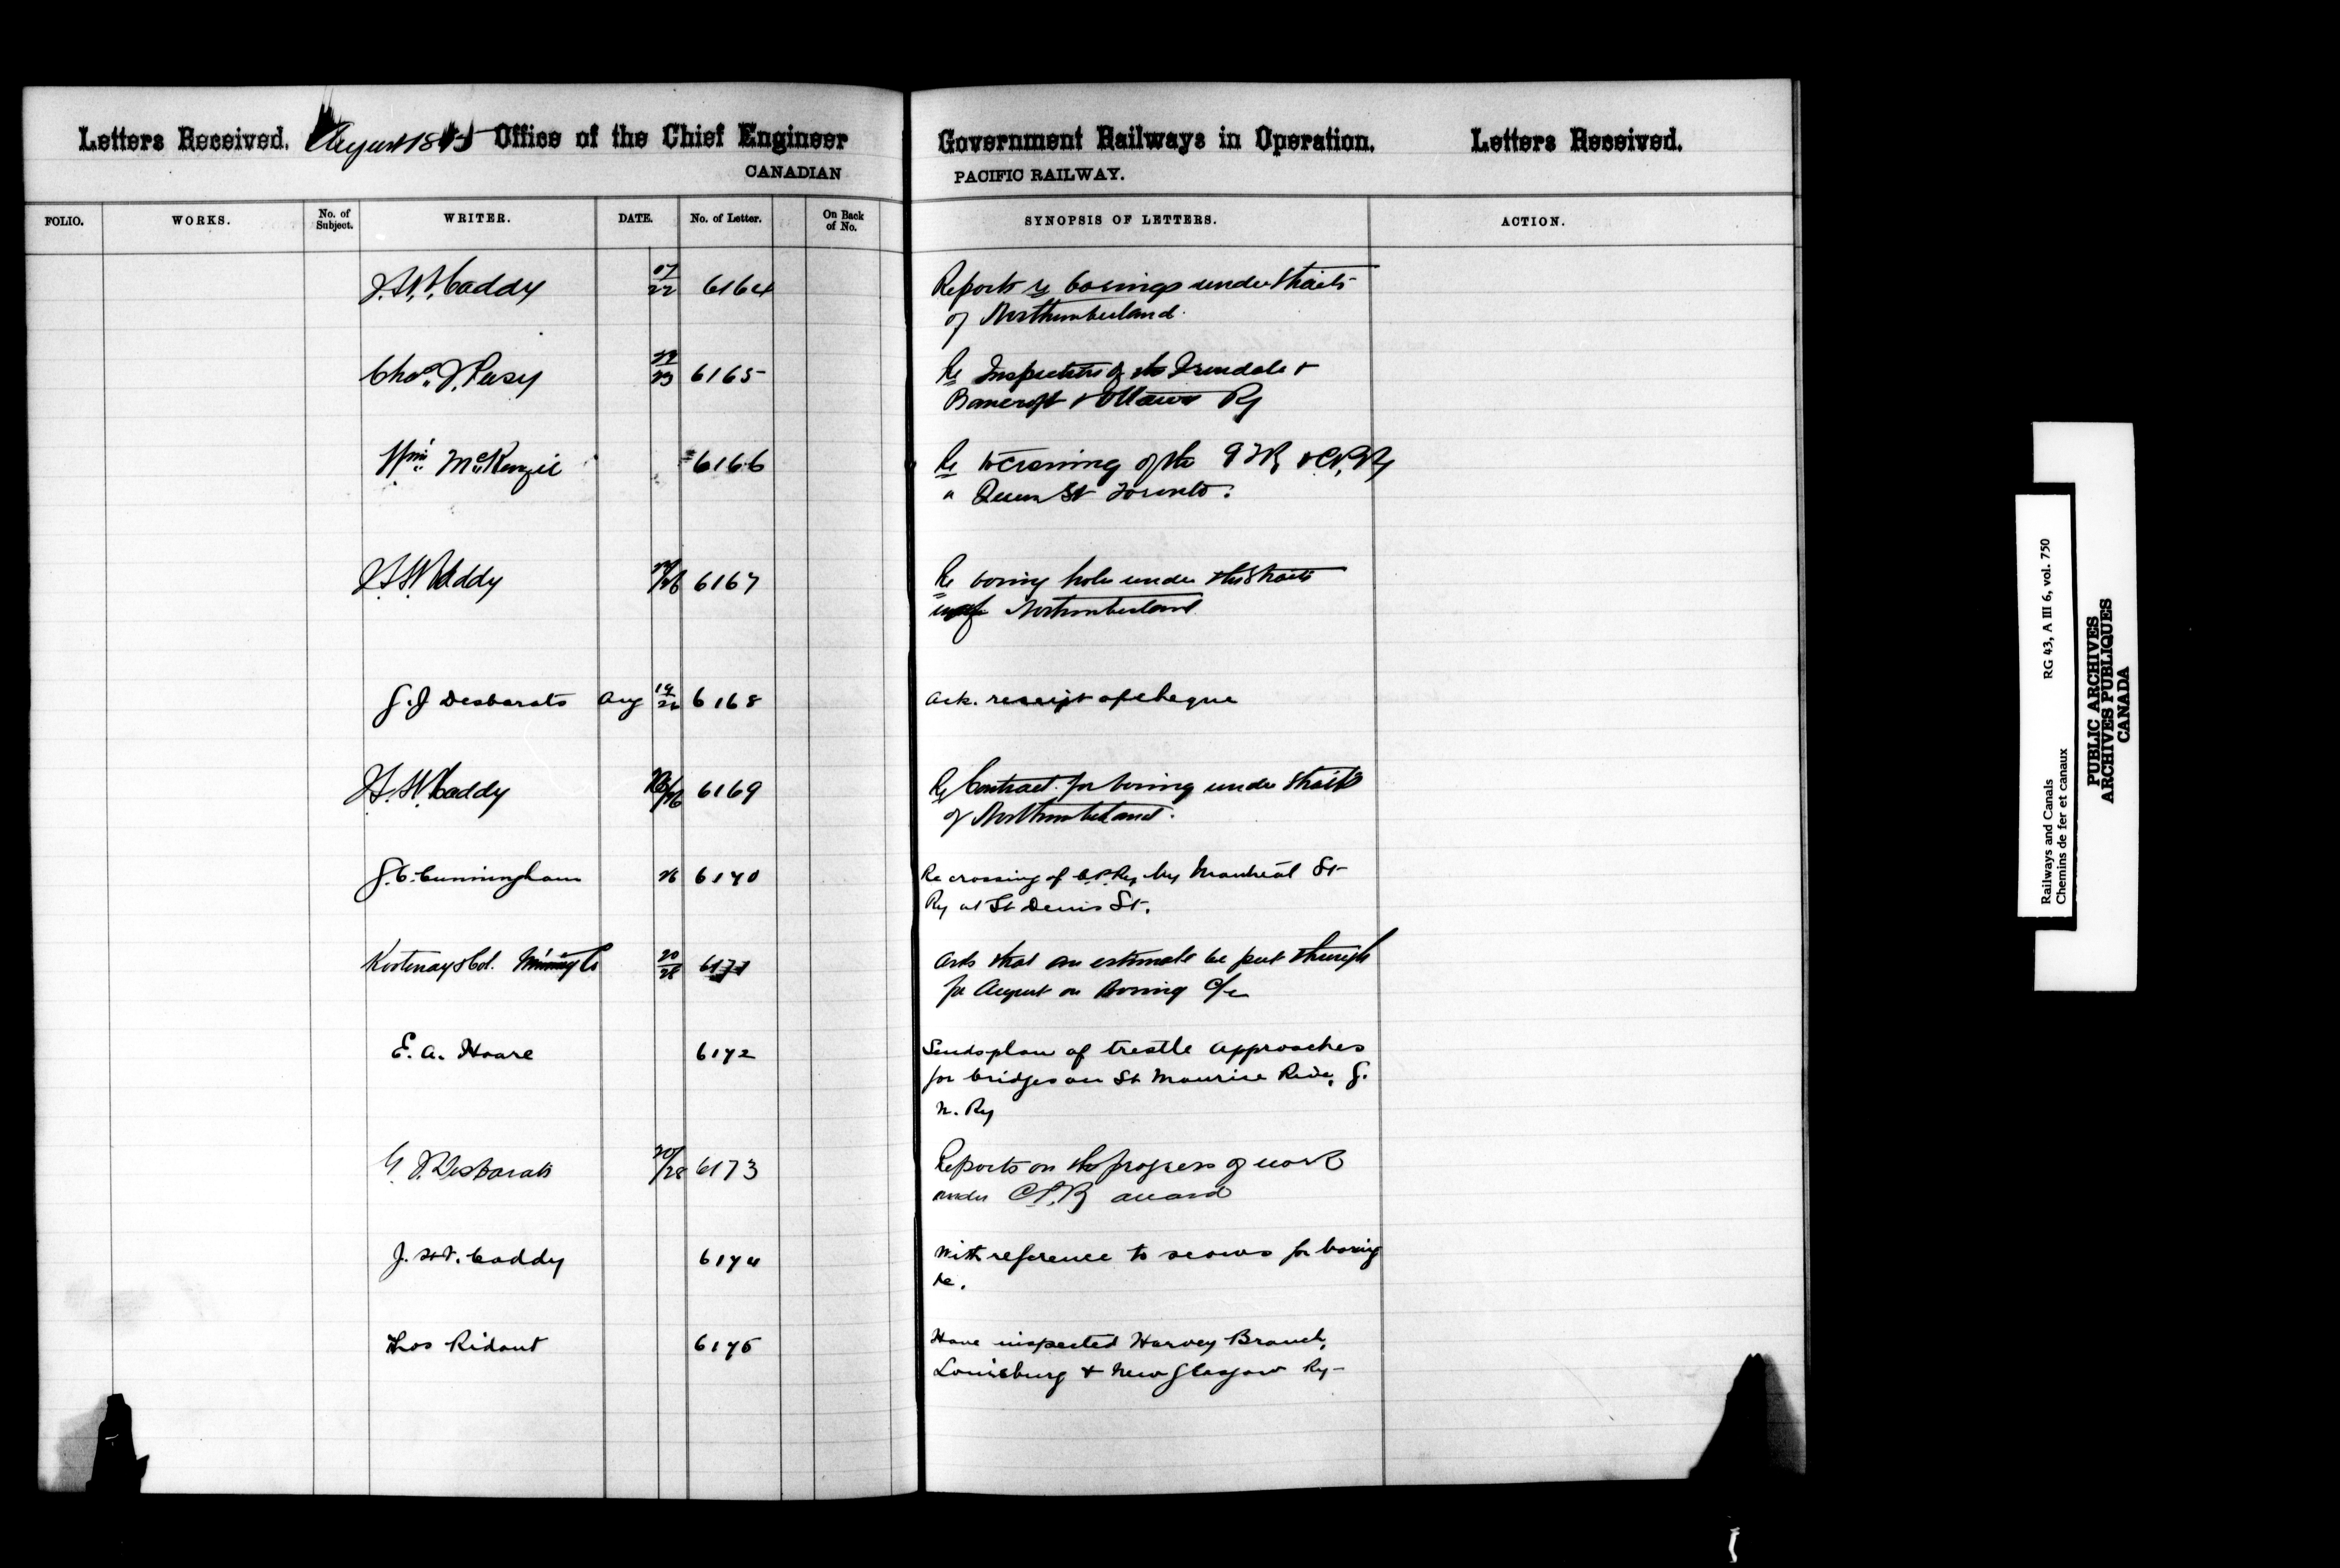 Letters Received. August 1895 Office of the Chief Engineer
CANADIAN
Government Railways in Operation. Letters Received.
PACIFIC RAILWAY.
FOLIO. WORKS. No. of Subject. WRITER. DATE. No. of Letter. On Back of No. SYNOPSIS OF LETTERS. ACTION.
Caddy 22 6164 Reports re borings under Straits
of Northumberland.
23 6165 Re Inspection of the Irondale &
Bancroft & Ottawa Ry
Wm McKenzie 6166 Re crossing of the GTR & C.P.Ry
Queen St Toronto.
Caddy 26 6167 Re boring hole under the Straits
of Northumberland
G. J Desbarats Aug 6168 Ack. receipt of cheque
Caddy 6169 Re Contract for boring under Straits
of Northumberland.
G. C. Cunningham 26 6170 Re crossing of C.P.Ry by Montreal St
Ry at St Denis St.
Kootenay & Col. Mining Co 20/28 6171 Asks that an estimate be put through
for August on Boring a/c
E. A. Hoare 6172 Sends plan of trestle approaches
for bridges over St Maurice River, G.
N. Ry
G. J. Desbarats 20/28 6173 Reports on the progress of work
under C.P.R award
Caddy 6174 With reference to scows for boring
&c.
Thos Ridout 6175 Have inspected Harvey Branch,
Louisburg & New Glasgow Ry
Railways and Canals RG 43, A III 6, vol. 750
Chemins de fer et canaux
PUBLIC ARCHIVES
ARCHIVES PUBLIQUES
CANADA